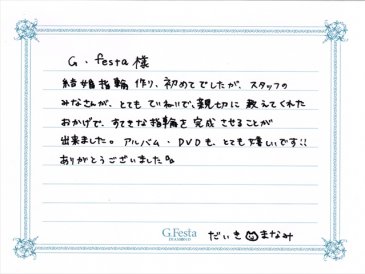 G.festa様
結婚指輪作り、初めてでしたが、スタッフの
みなさんが、とても ていねいで、親切に 教えてくれた
おかげで、すてきな指輪を完成させることが
出来ました。アルバム・DVDも、とても嬉しいです!!
ありがとうございました。
G.Festa
だいき まなみ